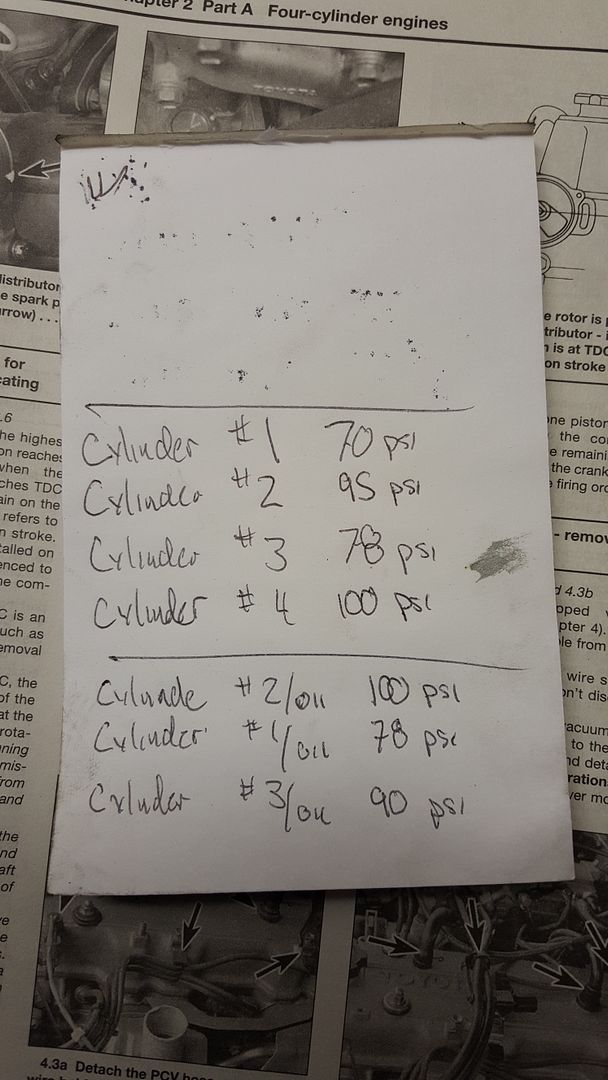 Chapter 2 Part A Four-cylinder engines
TOYOTA
distributor
e spark p
rrow) . . .
for
cating
.6
he highes
on reaches
when the
ches TDC
ain on the
refers to
n stroke.
talled on
enced to
he com-
C is an
uch as
emoval
C, the
of the
at the
rota-
ning
mis-
from
and
the
nd
aft
of
e rotor is
tributor -
n is at TDC
on stroke
ne piston
the co
e remaini
the crank
firing ord
- remov
4.3b
oped
pter 4).
le from
wire s
on't dis
vacuum
to the
nd deta
ration
ver mo
Cylinder #1 70 psi
Cylinder #2 95 psi
Cylinder #3 78 psi
Cylinder #4 100 psi
Cylinde #2/oil 100 psi
Cylinder #1/oil 78 psi
Cylinder #3/oil 90 psi
4.3a Detach the PCV hose